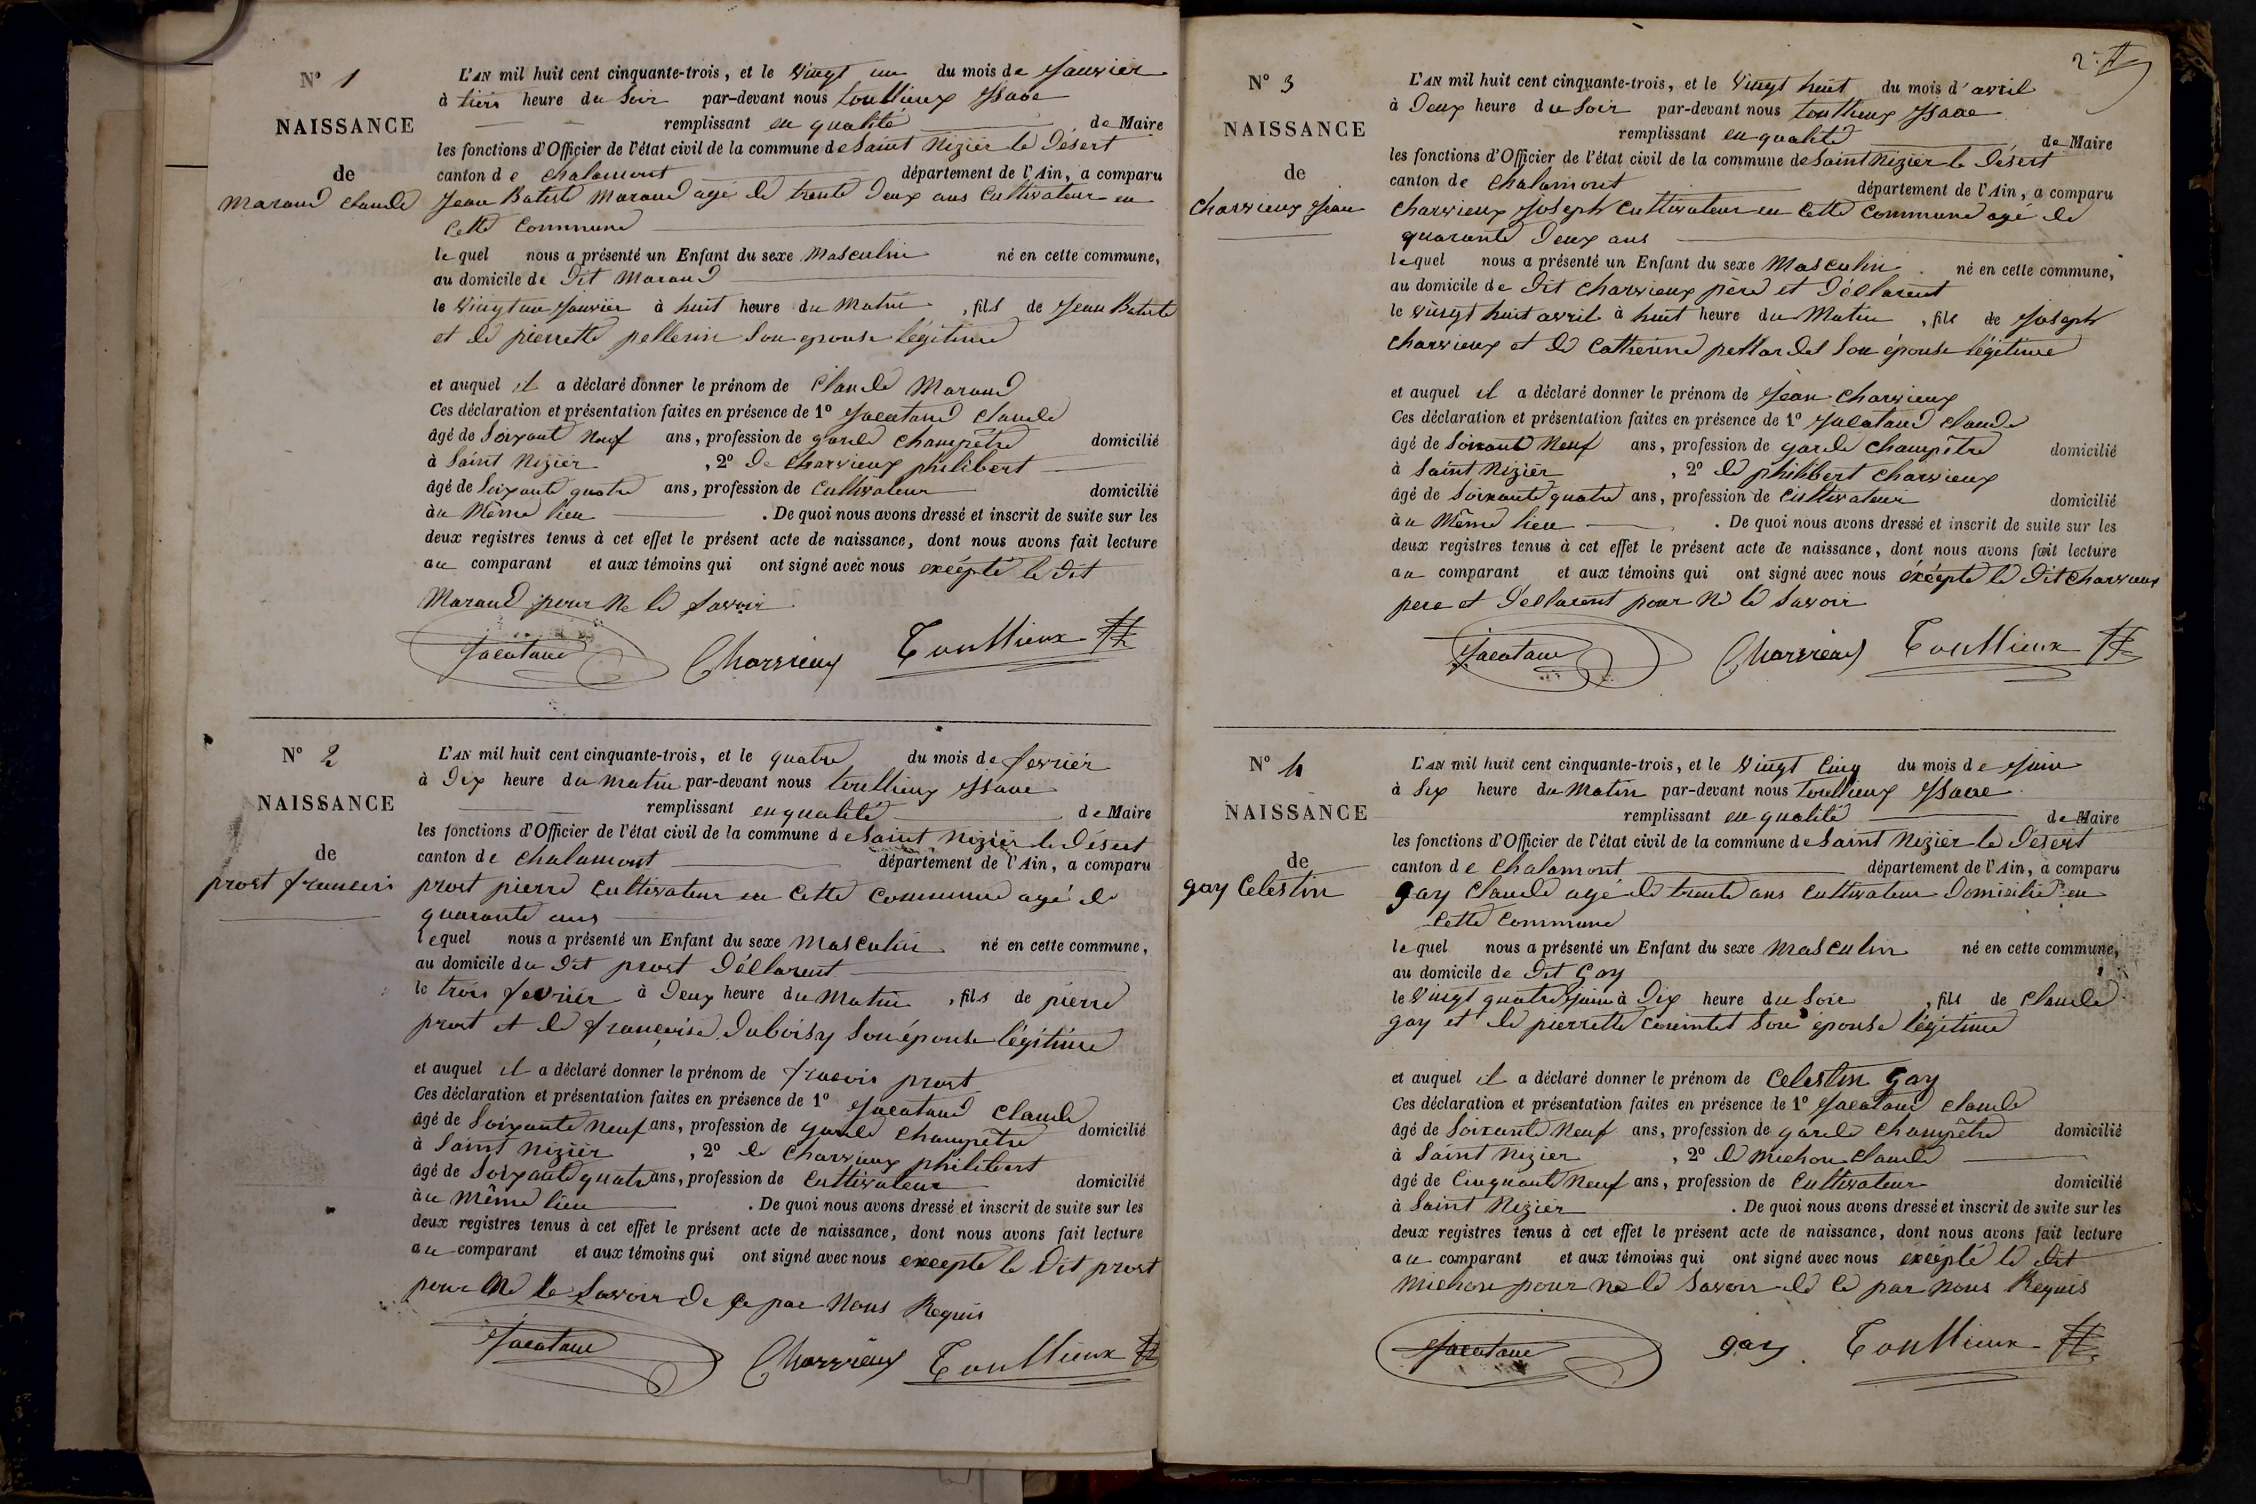 N° 1
NAISSANCE
de
Maraud Claude
L'AN mil huit cent cinquante-trois, et le vingt un du mois de Janvier
à trois heure du Soir par-devant nous toullieux Isaac
remplissant en qualité de Maire
les fonctions d'Officier de l'état civil de la commune de Saint Nizier le Désert
canton de chalamont département de l'Ain, a comparu
Jean Batiste Maraud agé de trente Deux ans Cultivateur en
Cette Commune
lequel nous a présenté un Enfant du sexe Masculin né en cette commune,
au domicile de Dit Maraud
le vingt un Janvier à huit heure du Matin, fils de Jean Batiste
et de pierrette pellerin Son epouse légitime
et auquel il a déclaré donner le prénom de Claude Maraud
Ces déclaration et présentation faites en présence de 1° Jacataud Claude
âgé de Soixante Neuf ans, profession de garde Champêtre domicilié
à Saint Nizier, 2° De Charvieux philibert
âgé de Soixante quatre ans, profession de Cultivateur domicilié
àu Même lieu. De quoi nous avons dressé et inscrit de suite sur les
deux registres tenus à cet effet le présent acte de naissance, dont nous avons fait lecture
au comparant et aux témoins qui ont signé avec nous excépté le Dit
Maraud pour Ne le Savoir
Jacataud Charvieux Toullieux
N° 2
NAISSANCE
de
prost francois
L'AN mil huit cent cinquante-trois, et le quatre du mois de fevrier
à Dix heure du Matin par-devant nous toullieux Isaac
remplissant en qualité de Maire
les fonctions d'Officier de l'état civil de la commune de Saint Nizier le Désert
canton de Chalamont département de l'Ain, a comparu
prost pierre Cultivateur en Cette Commune agé de
quarante ans
lequel nous a présenté un Enfant du sexe Masculin né en cette commune,
au domicile du Dit prost Déclarent
le trois fevrier à Deux heure du Matin, fils de pierre
prost et de francoise Duboisy Son épouse légitime
et auquel il a déclaré donner le prénom de fracois prost
Ces déclaration et présentation faites en présence de 1° Jacataud Claude
âgé de Soixante Neuf ans, profession de garde Champêtre domicilié
à Saint Nizier, 2° de Charvieux philibert
âgé de Soixante quatre ans, profession de Cultivateur domicilié
àu Même lieu. De quoi nous avons dressé et inscrit de suite sur les
deux registres tenus à cet effet le présent acte de naissance, dont nous avons fait lecture
au comparant et aux témoins qui ont signé avec nous excepté le Dit prost
pour Ne le Savoir de ce par Nous Requis
Jacataud Charvieux Toullieux
2
N° 3
NAISSANCE
de
Charvieux Jean
L'AN mil huit cent cinquante-trois, et le Vingt huit du mois d'avril
à Deux heure du Soir par-devant nous toullieux Isaac
remplissant en qualité de Maire
les fonctions d'Officier de l'état civil de la commune de Saint Nizier le Désert
canton de Chalamont département de l'Ain, a comparu
Charvieux Joseph Cultivateur en Cette Commune agé de
quarante Deux ans
lequel nous a présenté un Enfant du sexe Masculin né en cette commune,
au domicile de Dit Charvieux père et Déclarent
le vingt huit avril à huit heure du Matin, fils de Joseph
Charvieux et de Catherine pellardel Son épouse légitime
et auquel il a déclaré donner le prénom de Jean Charvieux
Ces déclaration et présentation faites en présence de 1° Jacataud Claude
âgé de Soixante Neuf ans, profession de garde Champêtre domicilié
à Saint Nizier, 2° de philibert Charvieux
âgé de Soixante quatre ans, profession de Cultivateur domicilié
àu Même lieu. De quoi nous avons dressé et inscrit de suite sur les
deux registres tenus à cet effet le présent acte de naissance, dont nous avons fait lecture
au comparant et aux témoins qui ont signé avec nous éxcépté le Dit Charvieux
pere et Déclarent pour Ne le Savoir
Jacataud Charvieux Toullieux
N° 4
NAISSANCE
de
gay Celestin
L'AN mil huit cent cinquante-trois, et le Vingt Cinq du mois de Juin
à Six heure du Matin par-devant nous toullieux Isaac
remplissant en qualité de Maire
les fonctions d'Officier de l'état civil de la commune de Saint Nizier le Désert
canton de Chalamont département de l'Ain, a comparu
gay Claude agé de trente ans Cultivateur Domicilié en
Cette Commune
lequel nous a présenté un Enfant du sexe Masculin né en cette commune,
au domicile de Dit Gay
le Vingt quatre Juin à Dix heure du Soir, fils de Claude
gay et de pierrette Son épouse légitime
et auquel il a déclaré donner le prénom de Celestin Gay
Ces déclaration et présentation faites en présence de 1° Jacataud Claude
âgé de Soixante Neuf ans, profession de garde Champêtre domicilié
à Saint Nizier, 2° de Michon Claude
âgé de Cinquante Neuf ans, profession de Cultivateur domicilié
à Saint Nizier. De quoi nous avons dressé et inscrit de suite sur les
deux registres tenus à cet effet le présent acte de naissance, dont nous avons fait lecture
au comparant et aux témoins qui ont signé avec nous excépté le Dit
Michon pour ne le Savoir de Ce par Nous Requis
Jacataud gay Toullieux